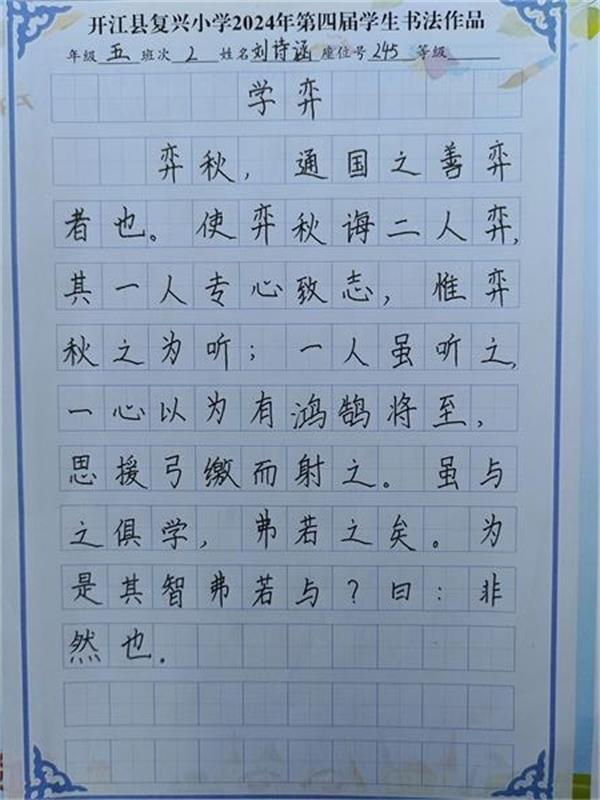 开江县复兴小学2024年第四届学生书法作品
年级 五 班次 2 姓名 刘诗涵 座位号 245 等级
学弈
弈秋，通国之善弈
者也。使弈秋诲二人弈，
其一人专心致志，惟弈
秋之为听；一人虽听之，
一心以为有鸿鹄将至，
思援弓缴而射之。虽与
之俱学，弗若之矣。为
是其智弗若与？曰：非
然也。